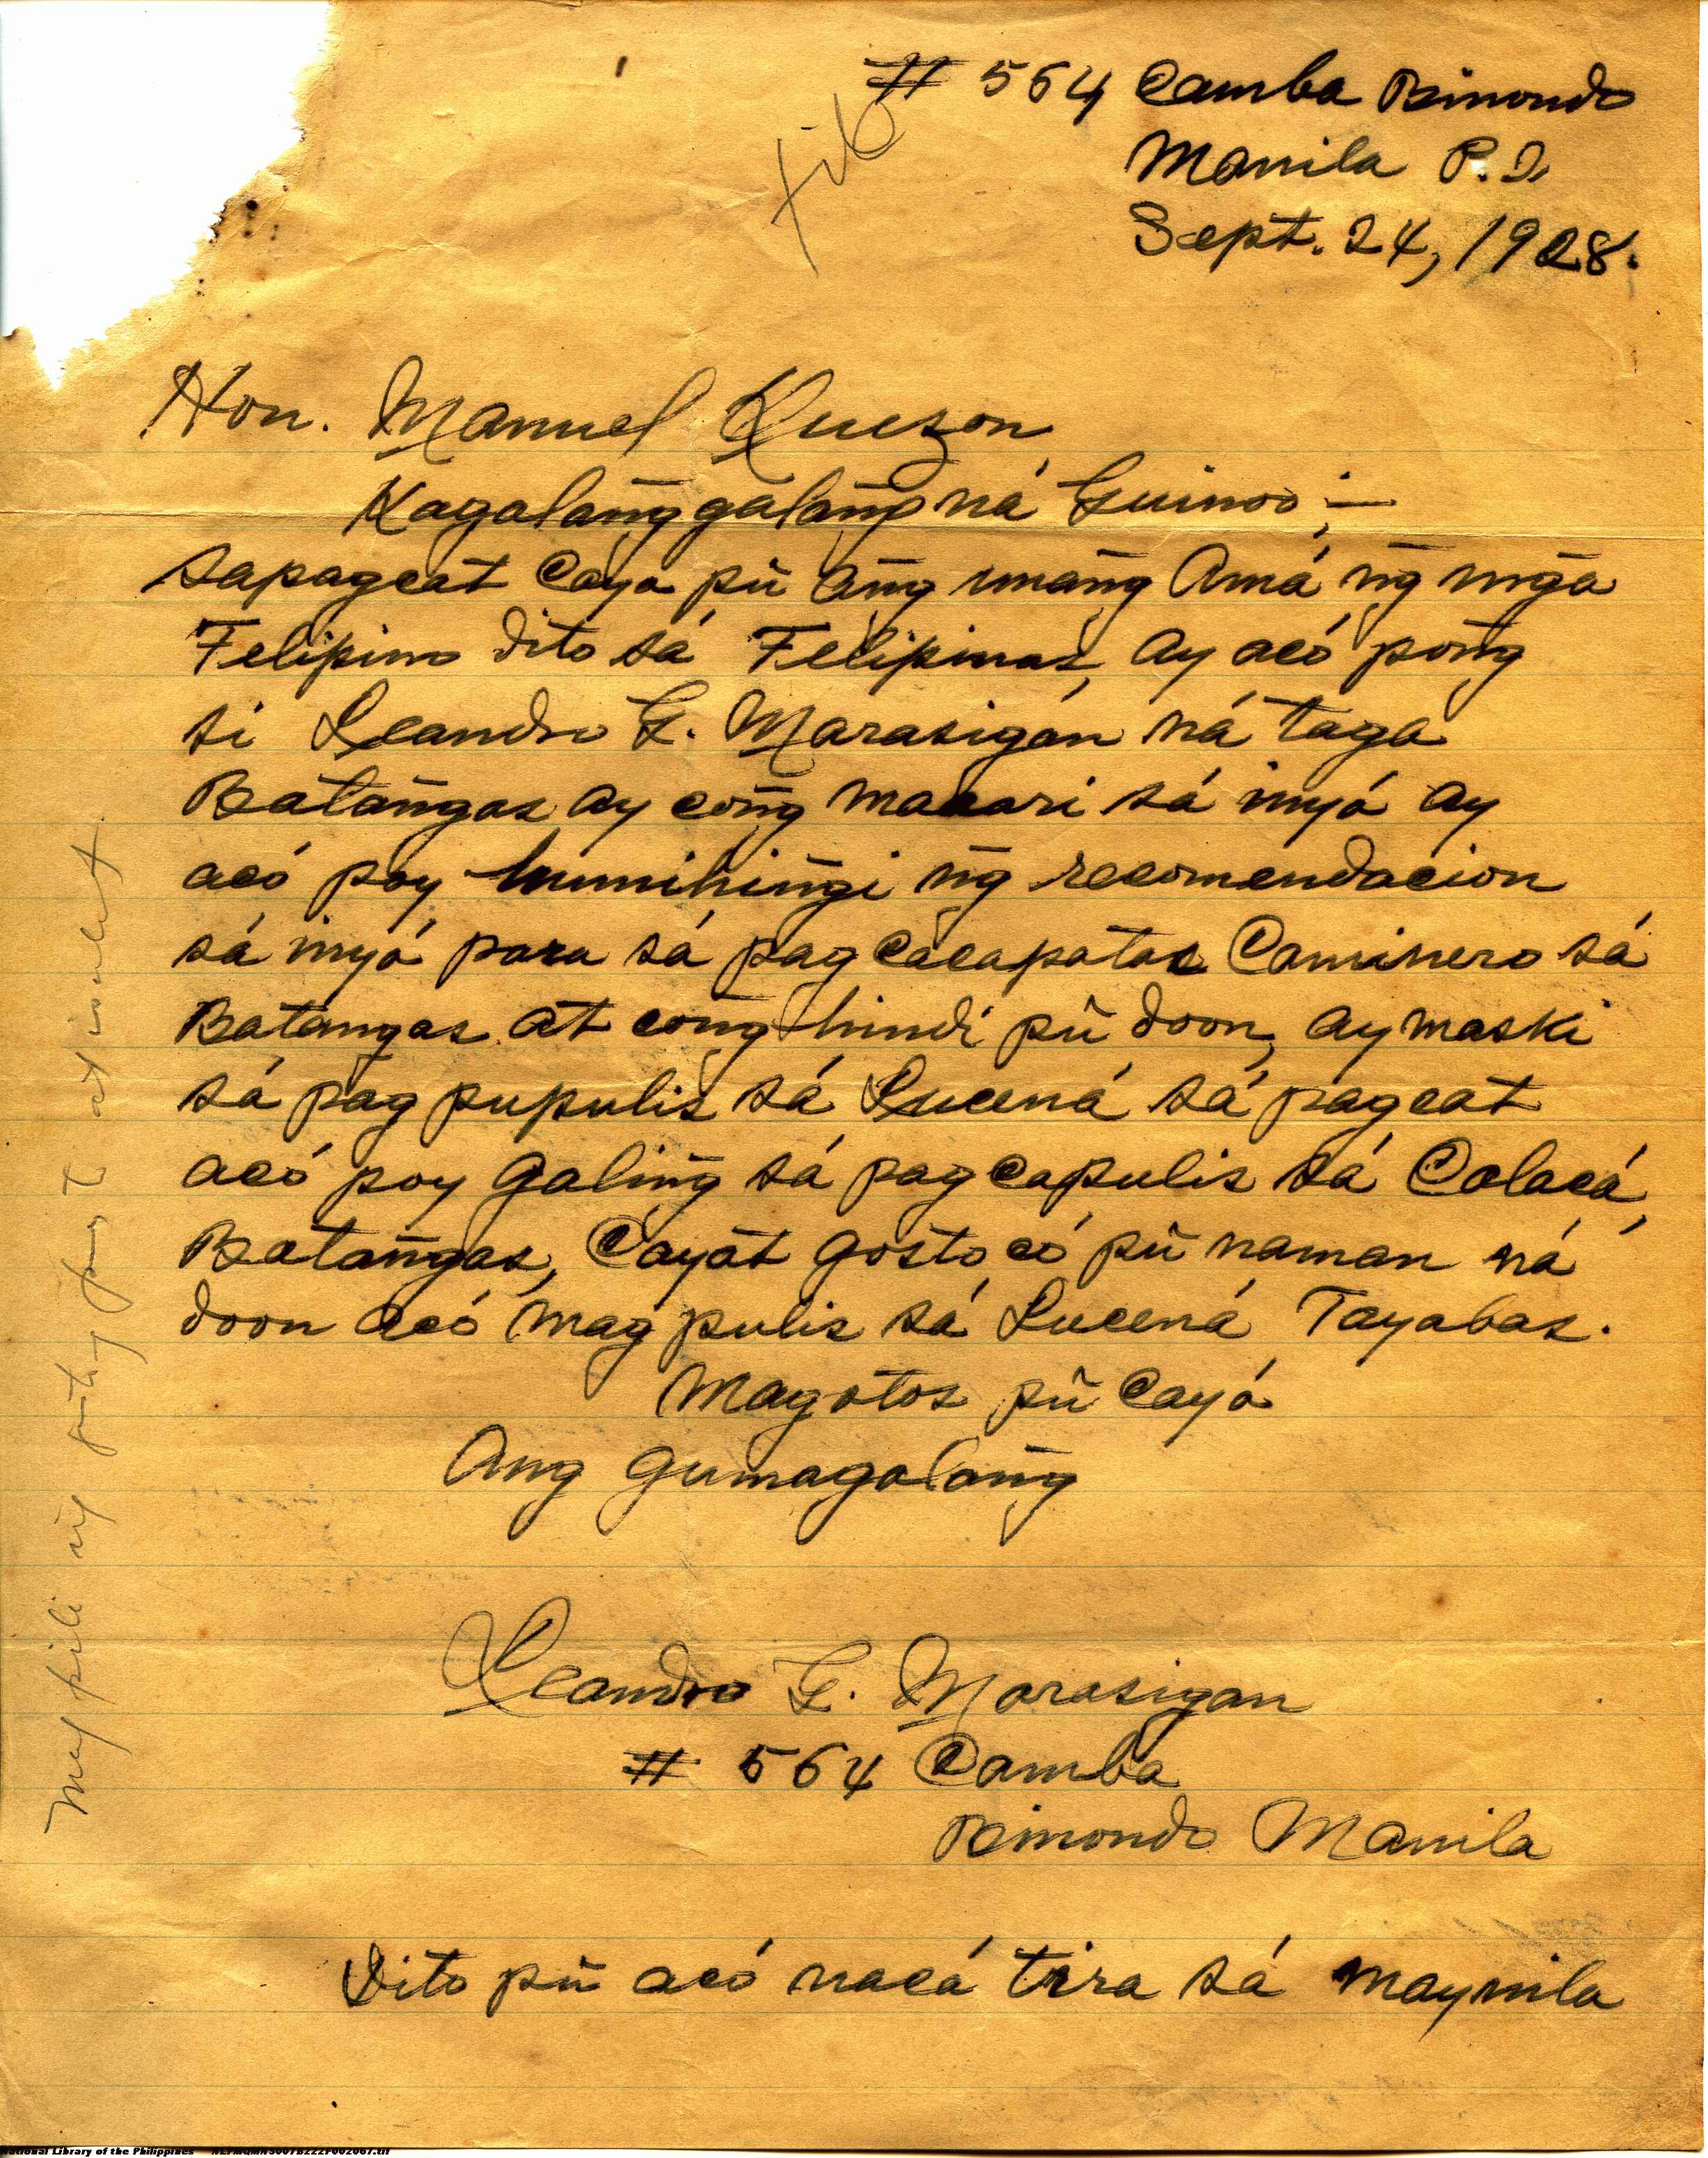 # 564 Camba Binondo
File
Manila P.I.
Sept. 24, 1928.
Hon. Manuel Quezon,
Kagalang̃galang̃ ná Guinoo;—
Sapagcat Cayo pũ ang̃ unang̃ Amá ng̃ mg̃a
Felipino dito sá Felipinas, ay acó pong̃
si Leandro G. Marasigán ná taga
Batang̃as ay cong̃ macari sá inyó ay
acó poy humihing̃i ng̃ recomendacion
sá inyó para sá pag cacapatas Caminero sá
Batangas at cong̃ hindi pũ doon, ay maski
sá pag pupulis sá Lucená sá pagcat
acó poy galing̃ sá pag capulis sá Calacá,
Batang̃as, Cayat gosto có pũ naman ná
doon acó mag pulis sá Lucená Tayabas.
Magotos pũ Cayó
Ang gumagalang̃
Leandro G. Marasigan
# 564 Camba
Binondo Manila
Dito pũ acó nacá tira sá maynila
National Library of the Philippines